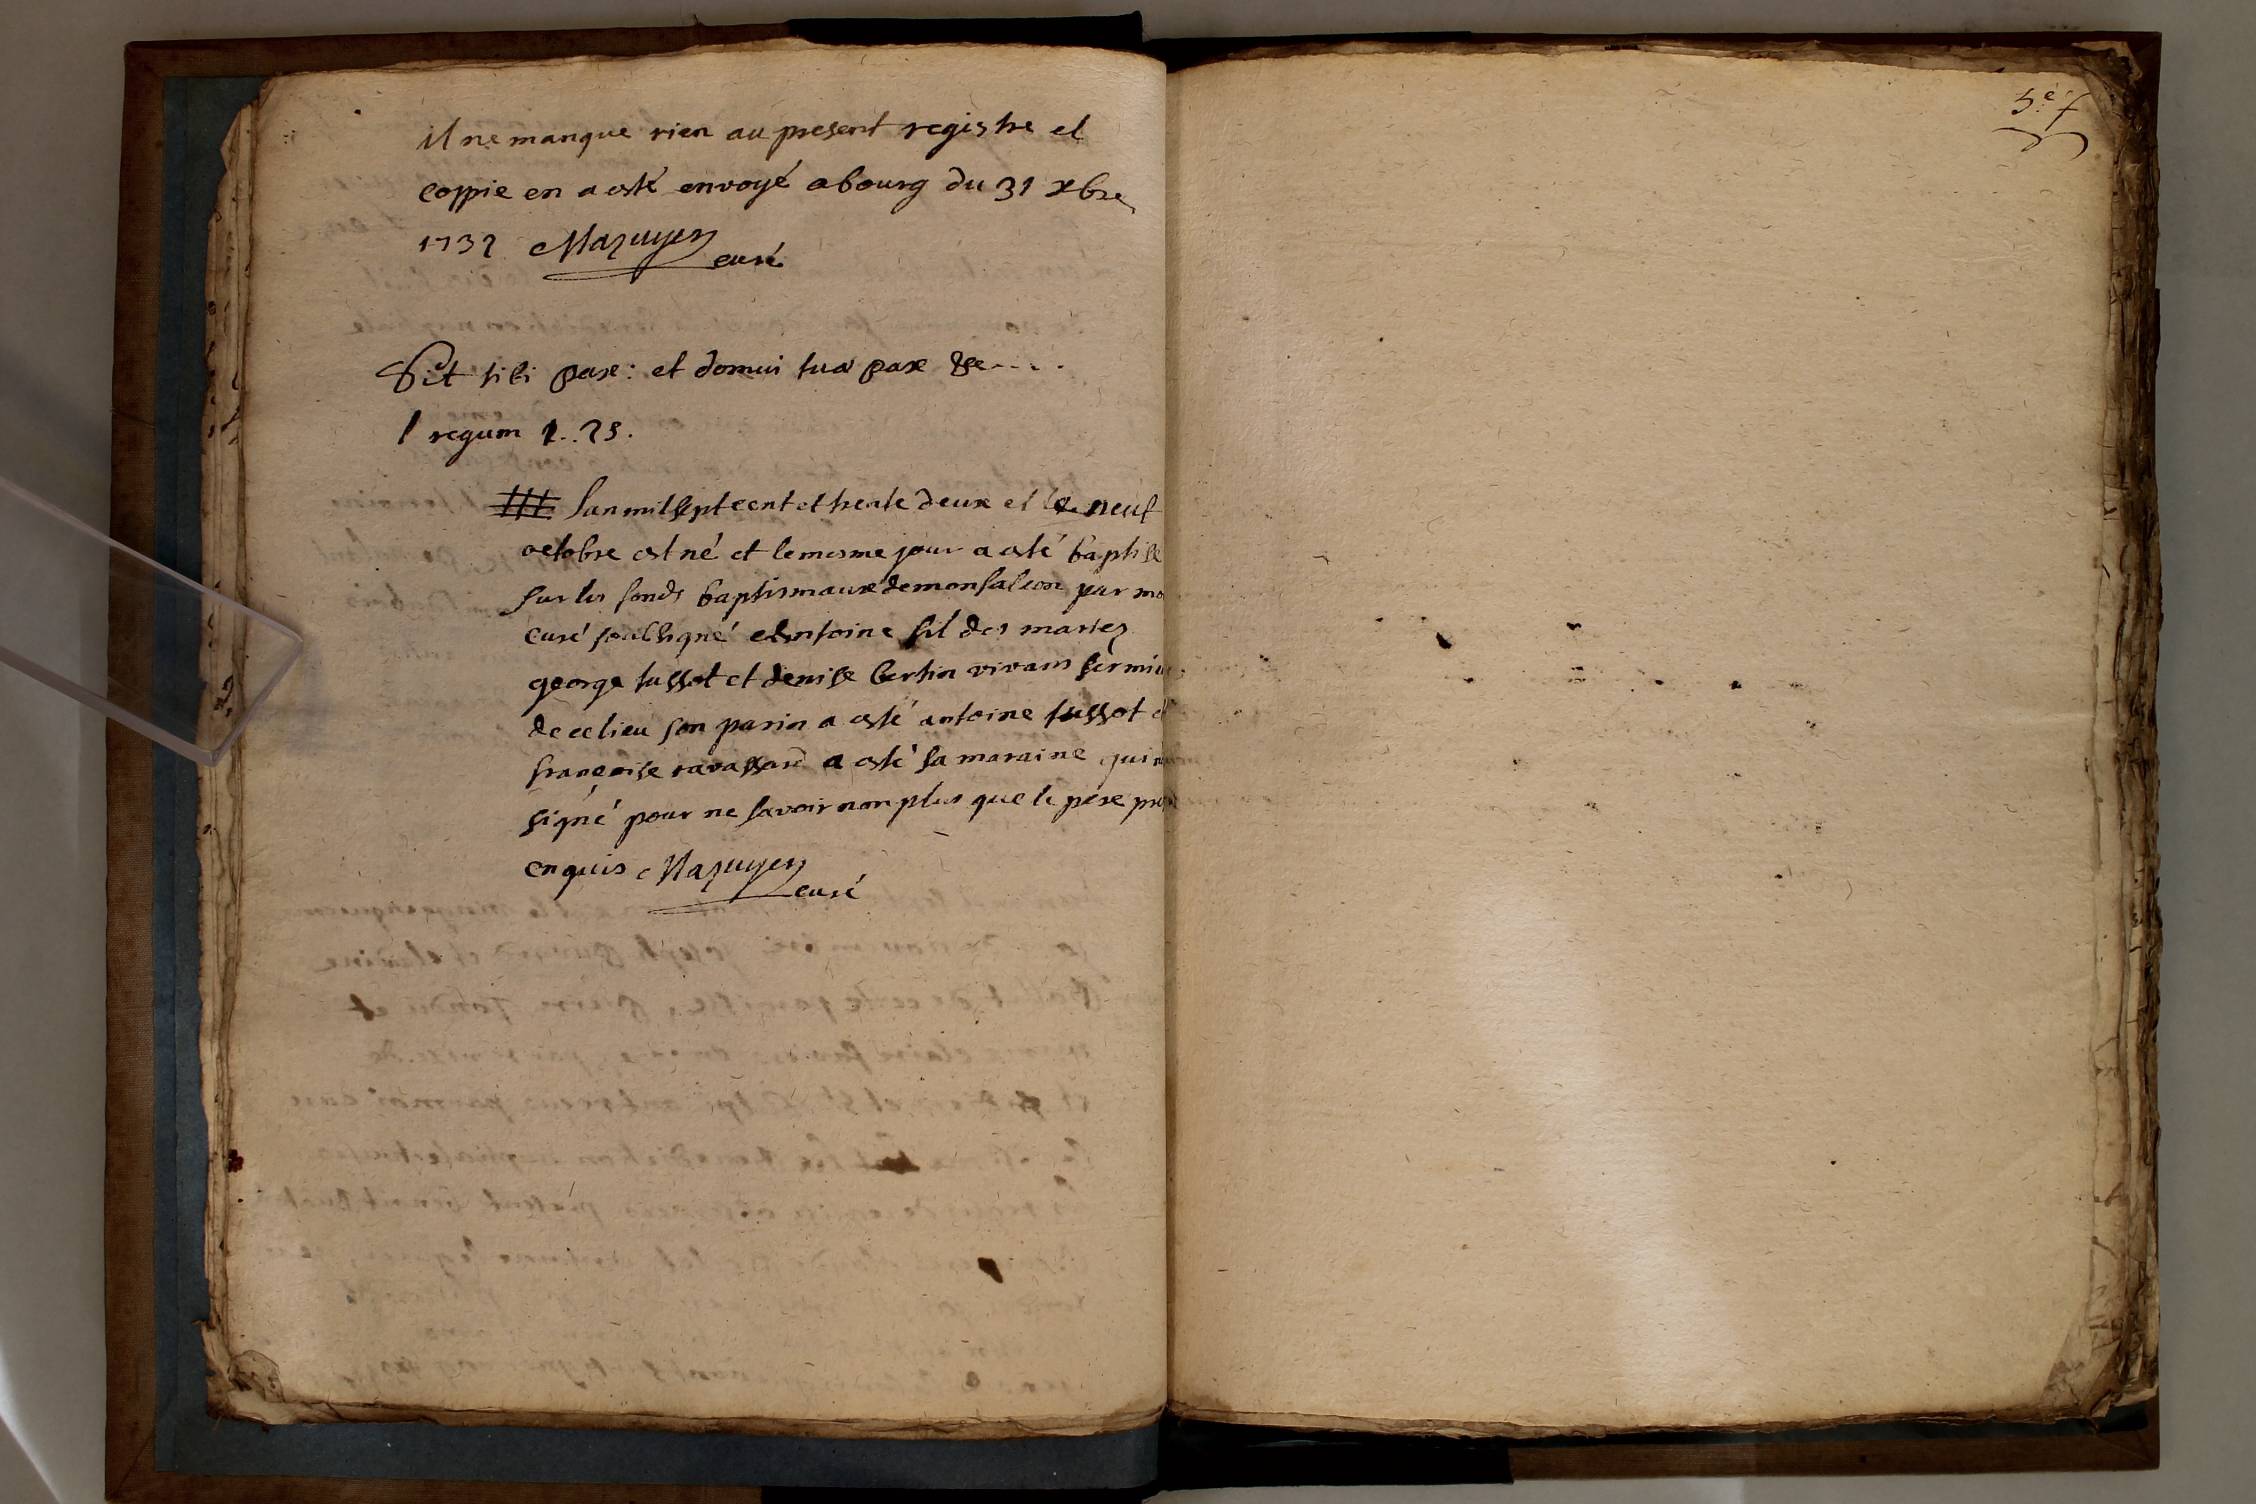 il ne manque rien au present registre et
coppie en a esté envoyé a bourg du 31 xbre
1732 Mazuyer curé
Sit tibi pax: et domui tuæ pax &c....
1 regum 1..25.
Lan mil sept cent et trente deux et le neuf
octobre est né et le mesme jour a esté baptisé
sur les fonds baptismaux de monfalcon par mo
curé soussigné antoine fil des mariez
george tussot et denise bertin vivans
de ce lieu son parin a esté antoine tussot
françoise ravassard a esté sa maraine qui
signé pour ne savoir non plus que le pére
enquis Mazuyer curé
5.e f